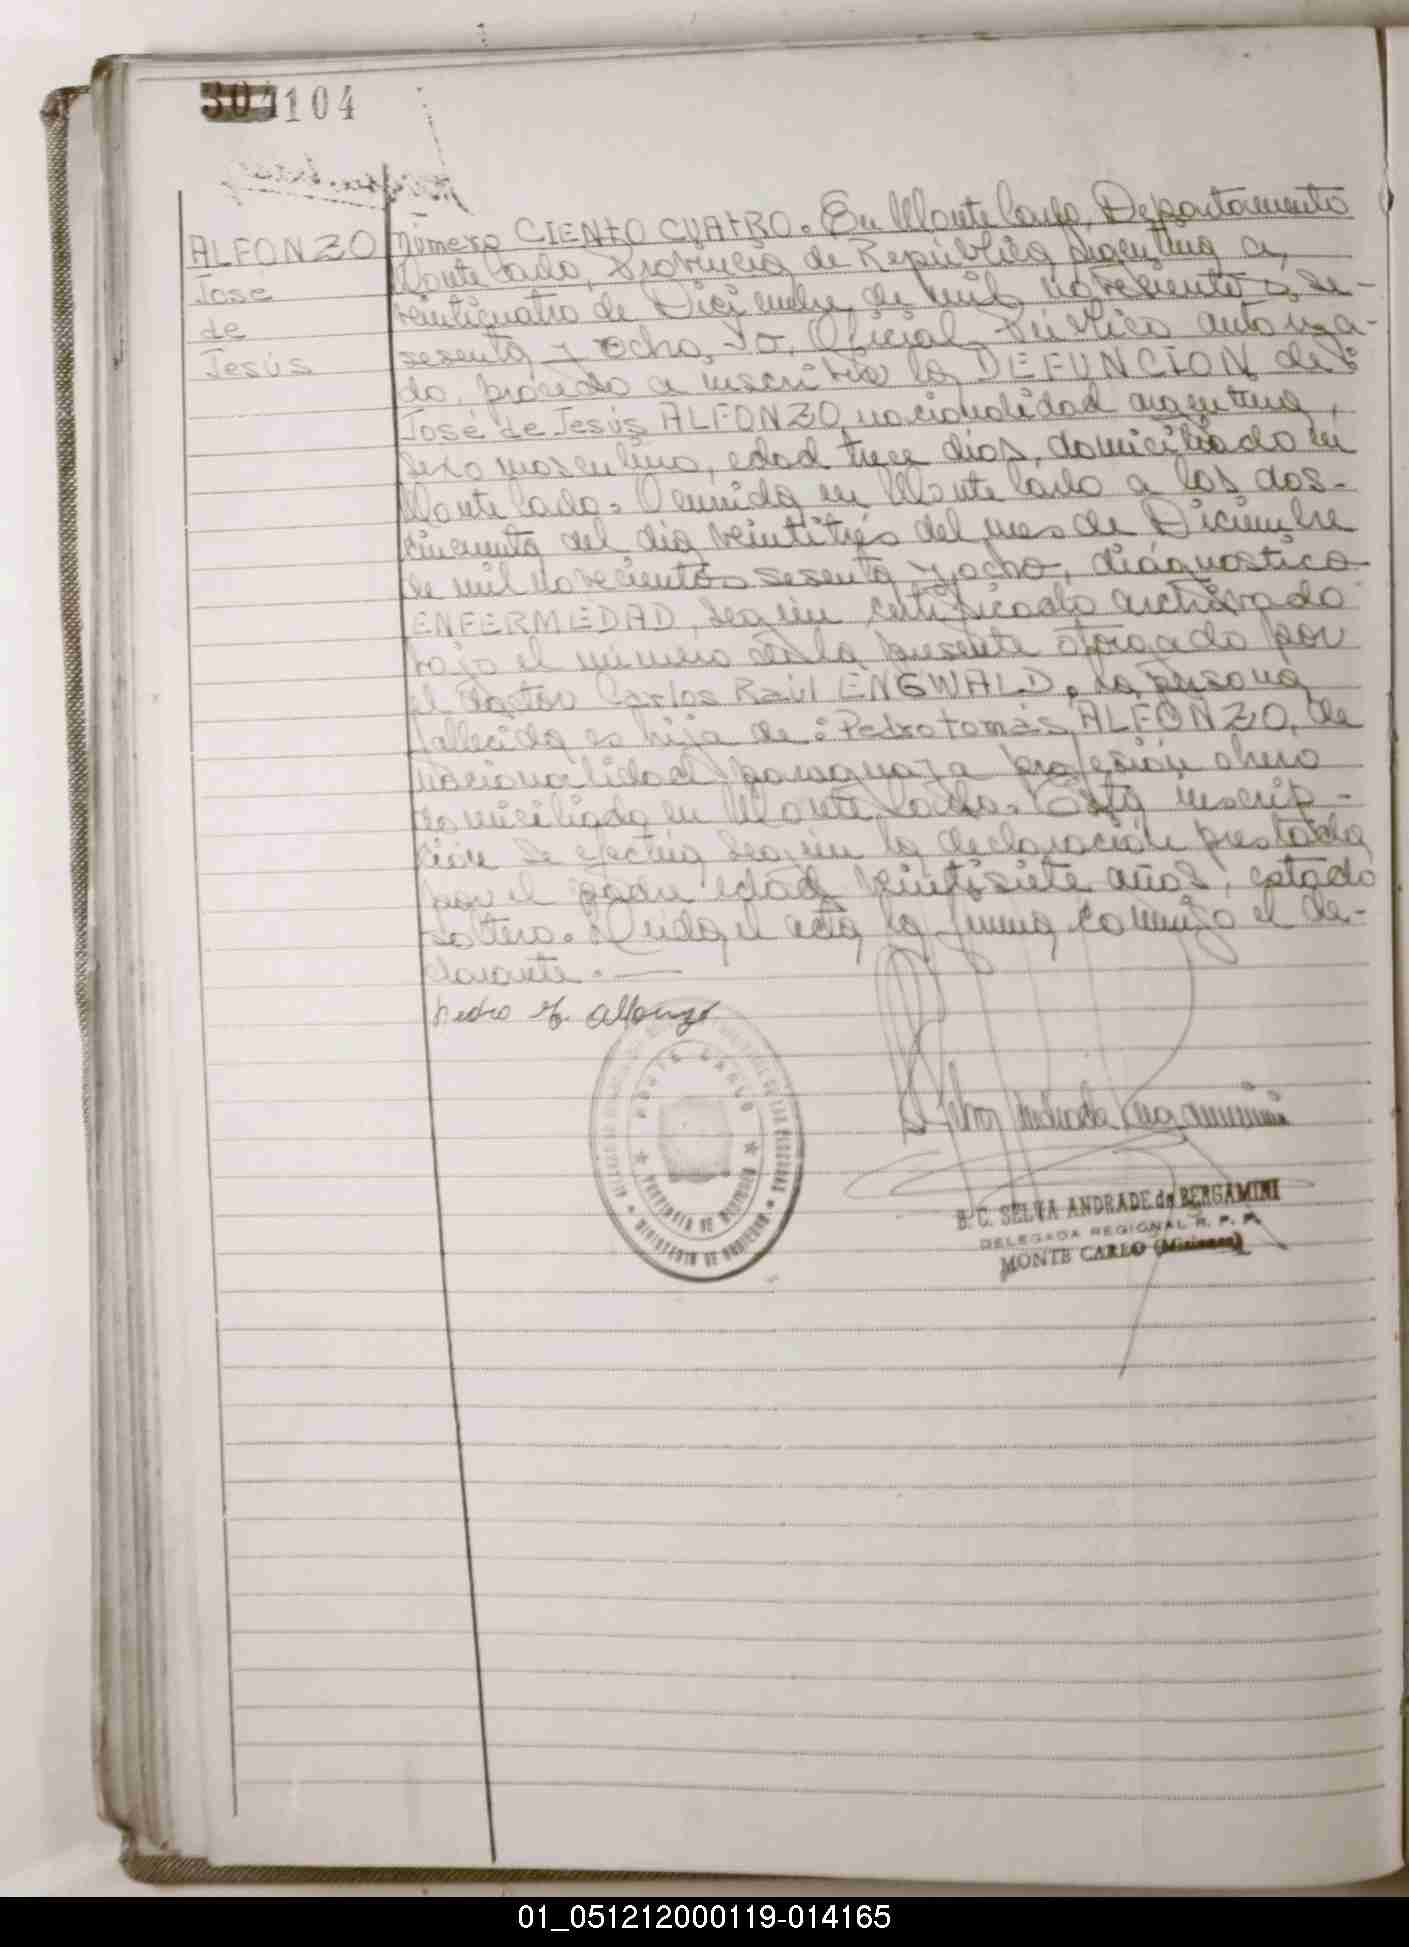 104
ALFONZO
José
de
Jesús
número CIENTO CUATRO. En Monte Carlo, Departamento
Monte Carlo, Provincia de República Argentina a,
veinticuatro de Diciembre de mil novecientos, se-
sesenta y ocho, Yo, Oficial Público autoriza-
do, procedo a inscribir la DEFUNCION de:
José de Jesús ALFONZO, nacionalidad argentina,
sexo masculino, edad trece días, domiciliado en
Monte Carlo. Ocurrida en Monte Carlo a las dos-
cincuenta del día veintitrés del mes de Diciembre
de mil novecientos sesenta y ocho, diágnostico
ENFERMEDAD, según certificado archivado
bajo el número de la presente otorgado por
el doctor Carlos Raúl ENGWALD. La persona
fallecida es hija de: Pedro tomás ALFONZO, de
nacionalidad paraguaya profesión obrero
domiciliado en Monte Carlo. Esta inscrip-
ción se efectúa según la declaración prestada
por el padre edad veintisiete años, estado
soltero. Leida el acta la firma conmigo el de-
clarante.—
Pedro T. Alfonzo
MONTE CARLO
PROVINCIA DE MISIONES
MINISTERIO DE GOBIERNO
B. C. SELVA ANDRADE de BERGAMINI
DELEGADA REGIONAL R. P. P.
MONTE CARLO (Misiones)
01_051212000119-014165